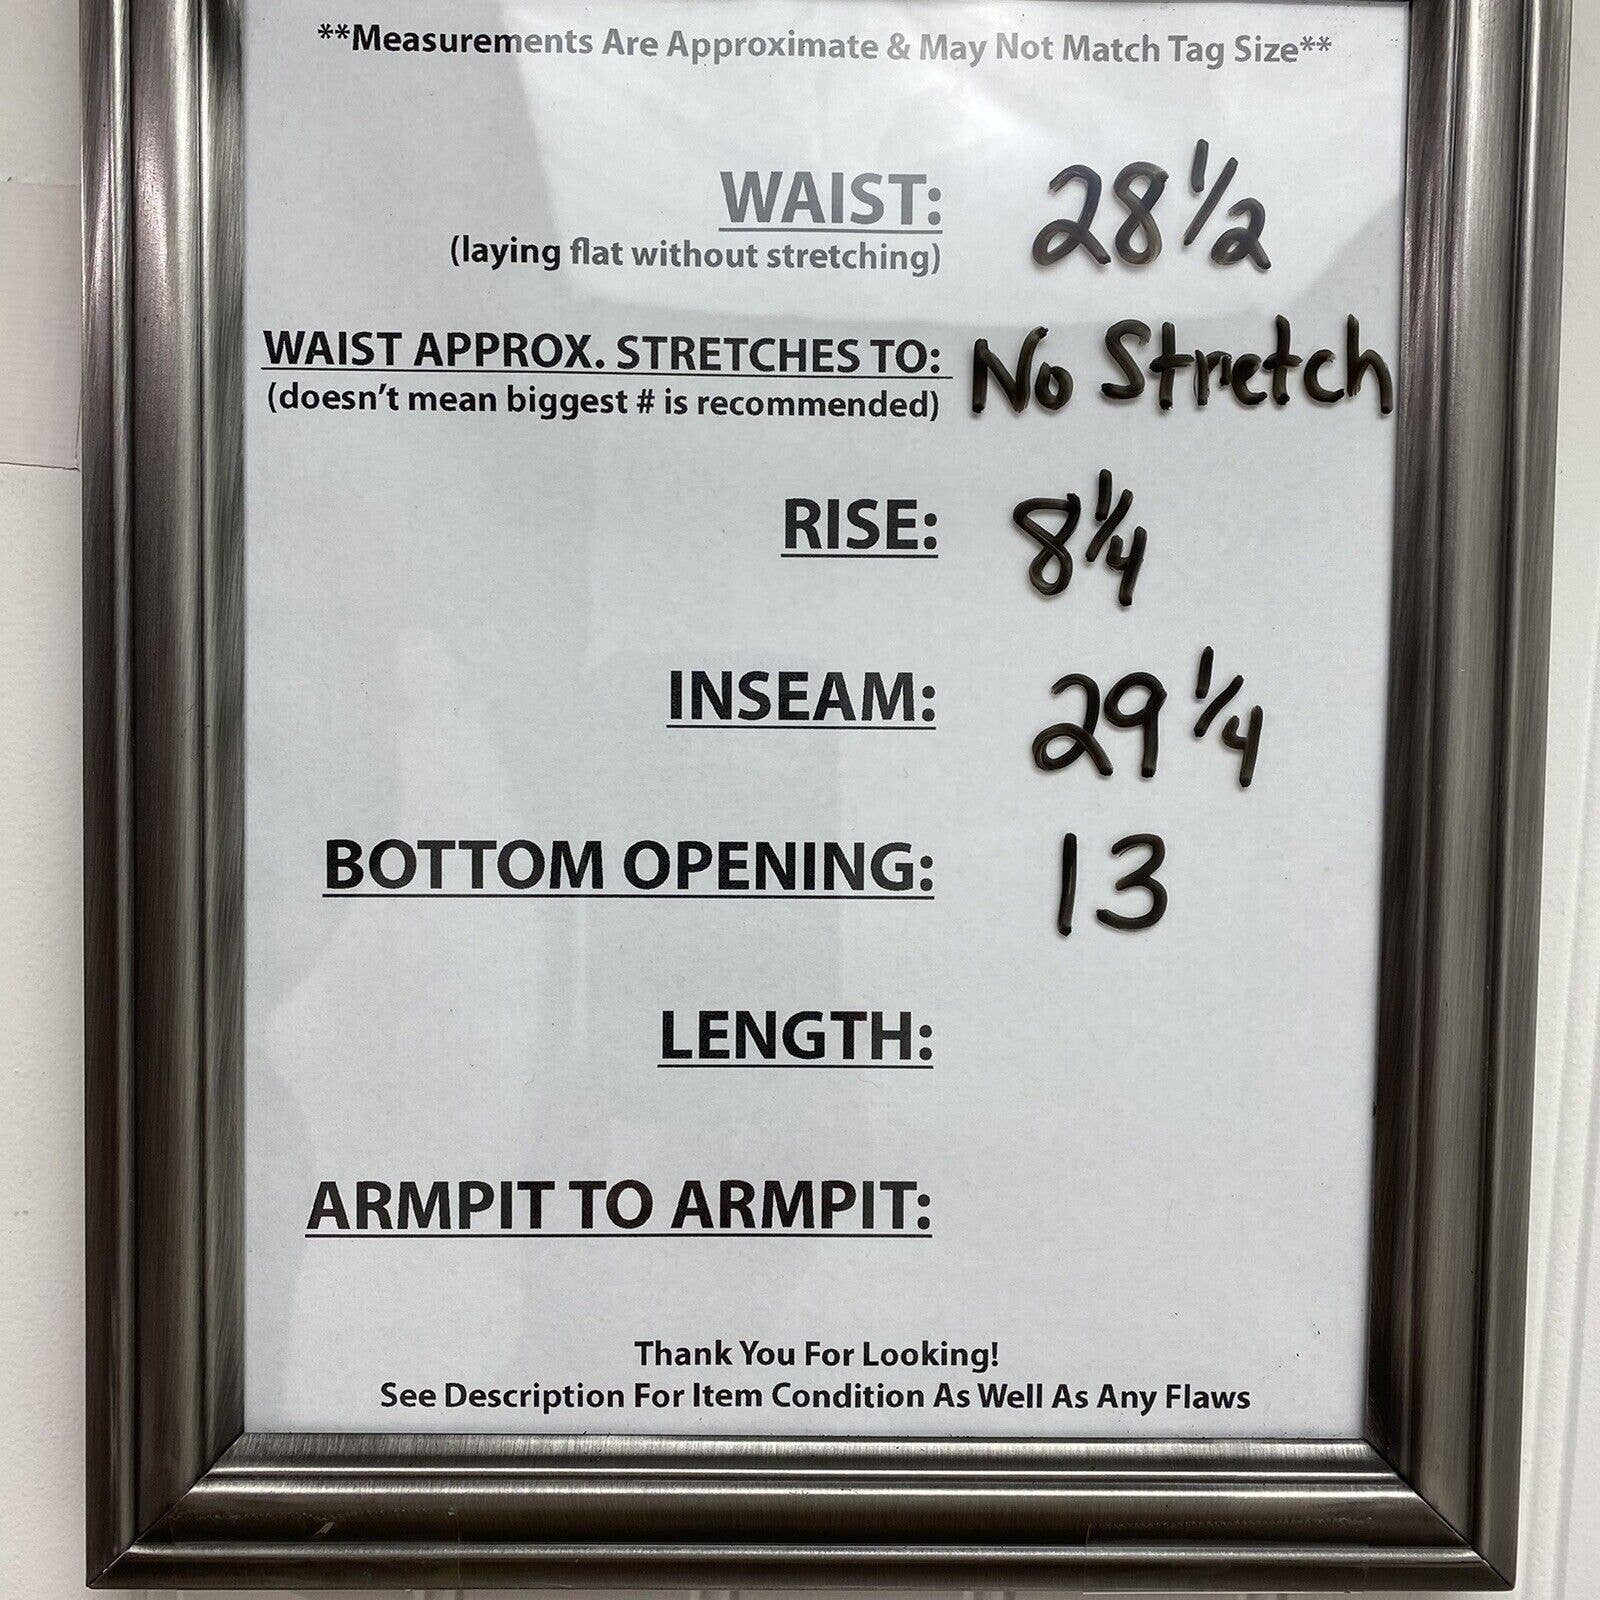 **Measurements Are Approximate & May Not Match Tag Size**
WAIST: 28 1/2
(laying flat without stretching)
WAIST APPROX. STRETCHES TO: No Stretch
(doesn't mean biggest # is recommended)
RISE: 8 1/4
INSEAM: 29 1/4
BOTTOM OPENING: 13
LENGTH:
ARMPIT TO ARMPIT:
Thank You For Looking!
See Description For Item Condition As Well As Any Flaws